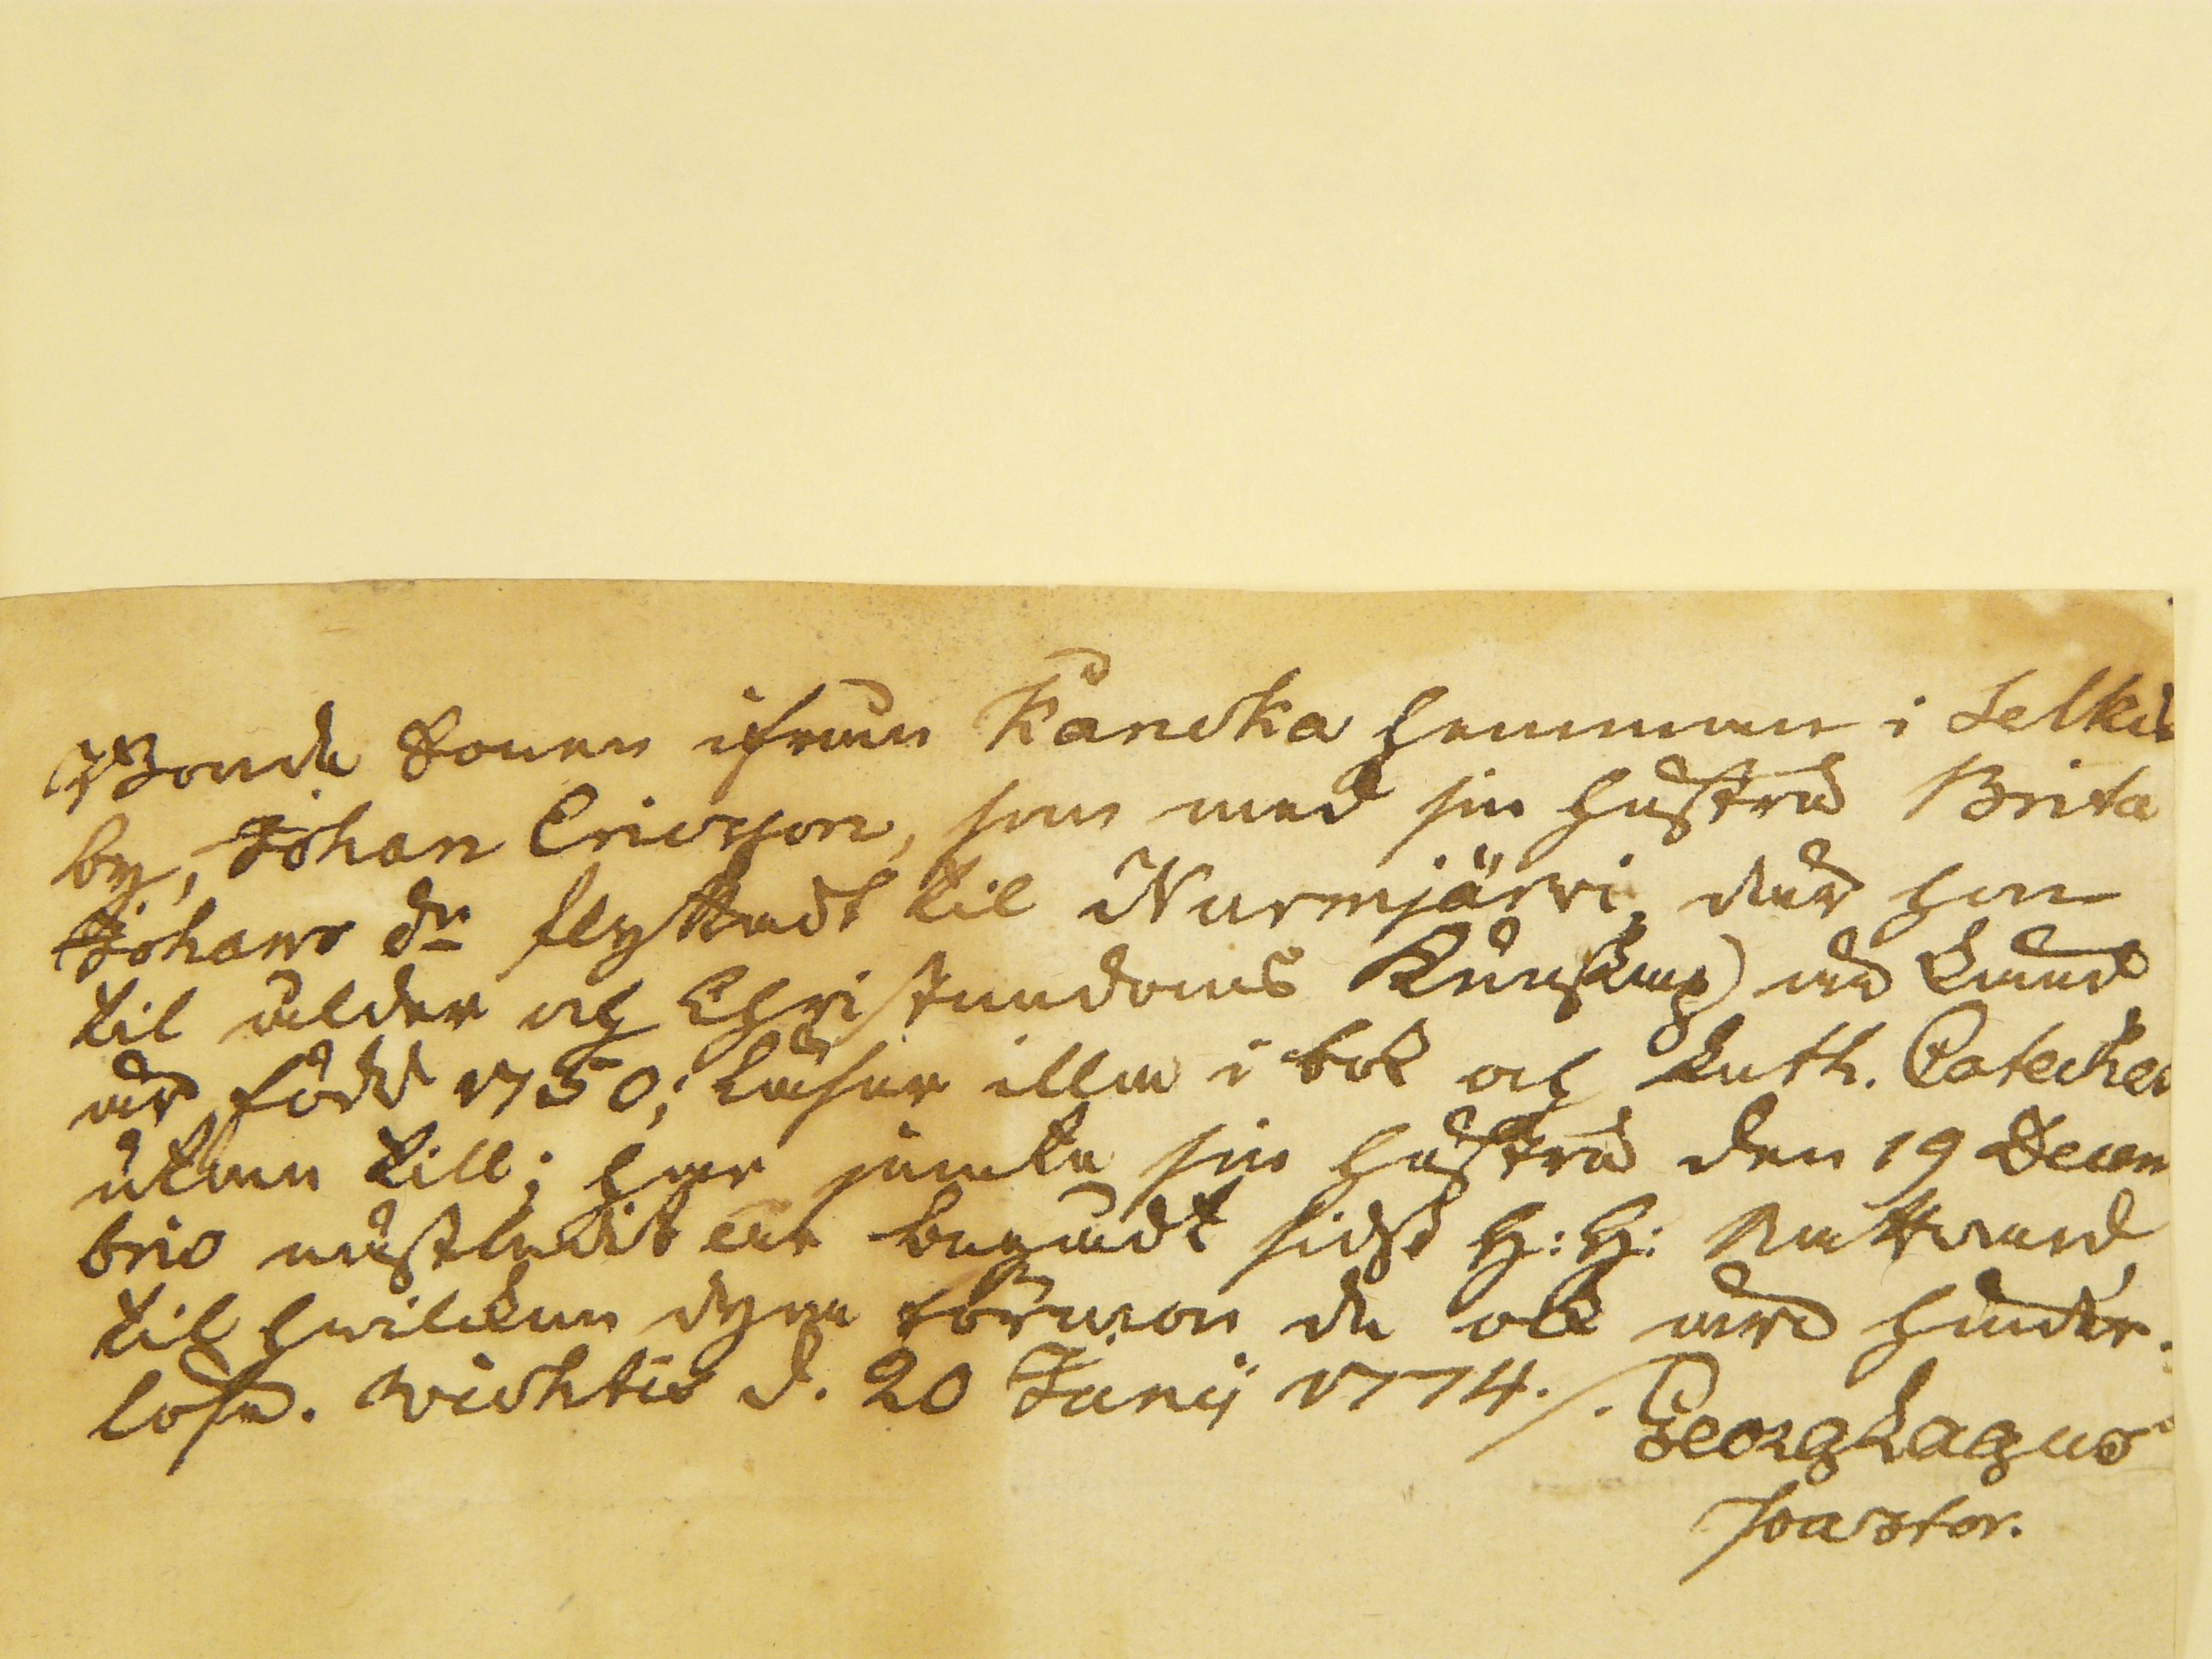 Bonde Sonen ifrån Kancka hemman i Selki
by, Johan Ericsson, som med sin hustru Brita
Johans dr flyttadt til Nurmjärvi, der hon
til ålder och Christendoms Kunskap är känd
är född 1750; läser illa i bok och Luth. Cateches
utan till; har jämte sin hustru den 19 Decem
brio nästledit år begådt sidst H: H: Nattward
til hwilken dyra förmon de ock äro hinder-
löse. Wichtis d. 20 Junij 1774./. Georg Lagus
Pastor.